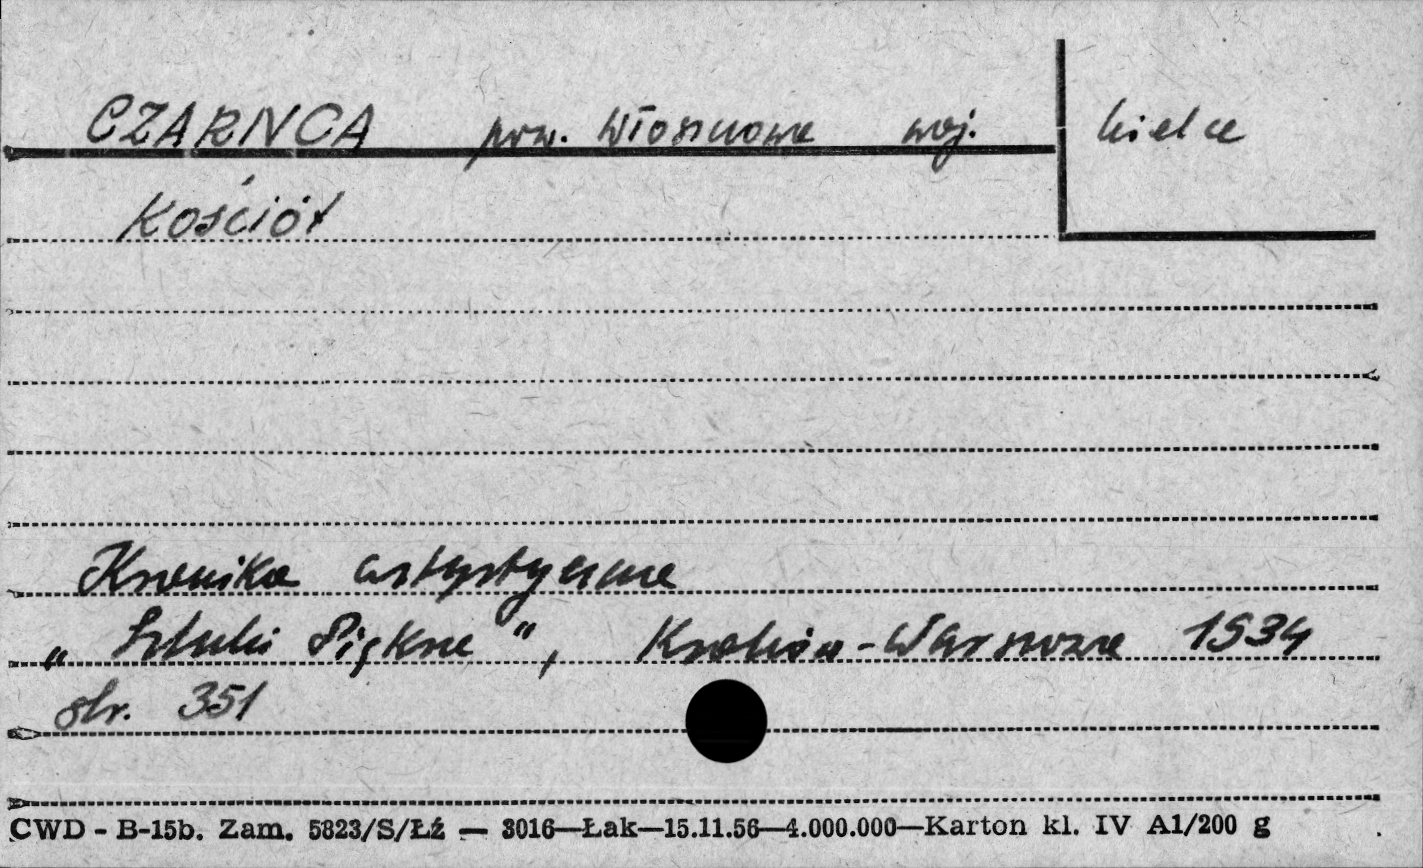 CZARNCA pow. Włoszczowa woj. Kielce
Kościół
Kronika artystyczna
„Sztuki Piękne", Kraków-Warszawa 1934
str. 351
CWD - B-15b. Zam. 5823/S/Łź — 3016—Łak—15.11.56—4.000.000—Karton kl. IV A1/200 g